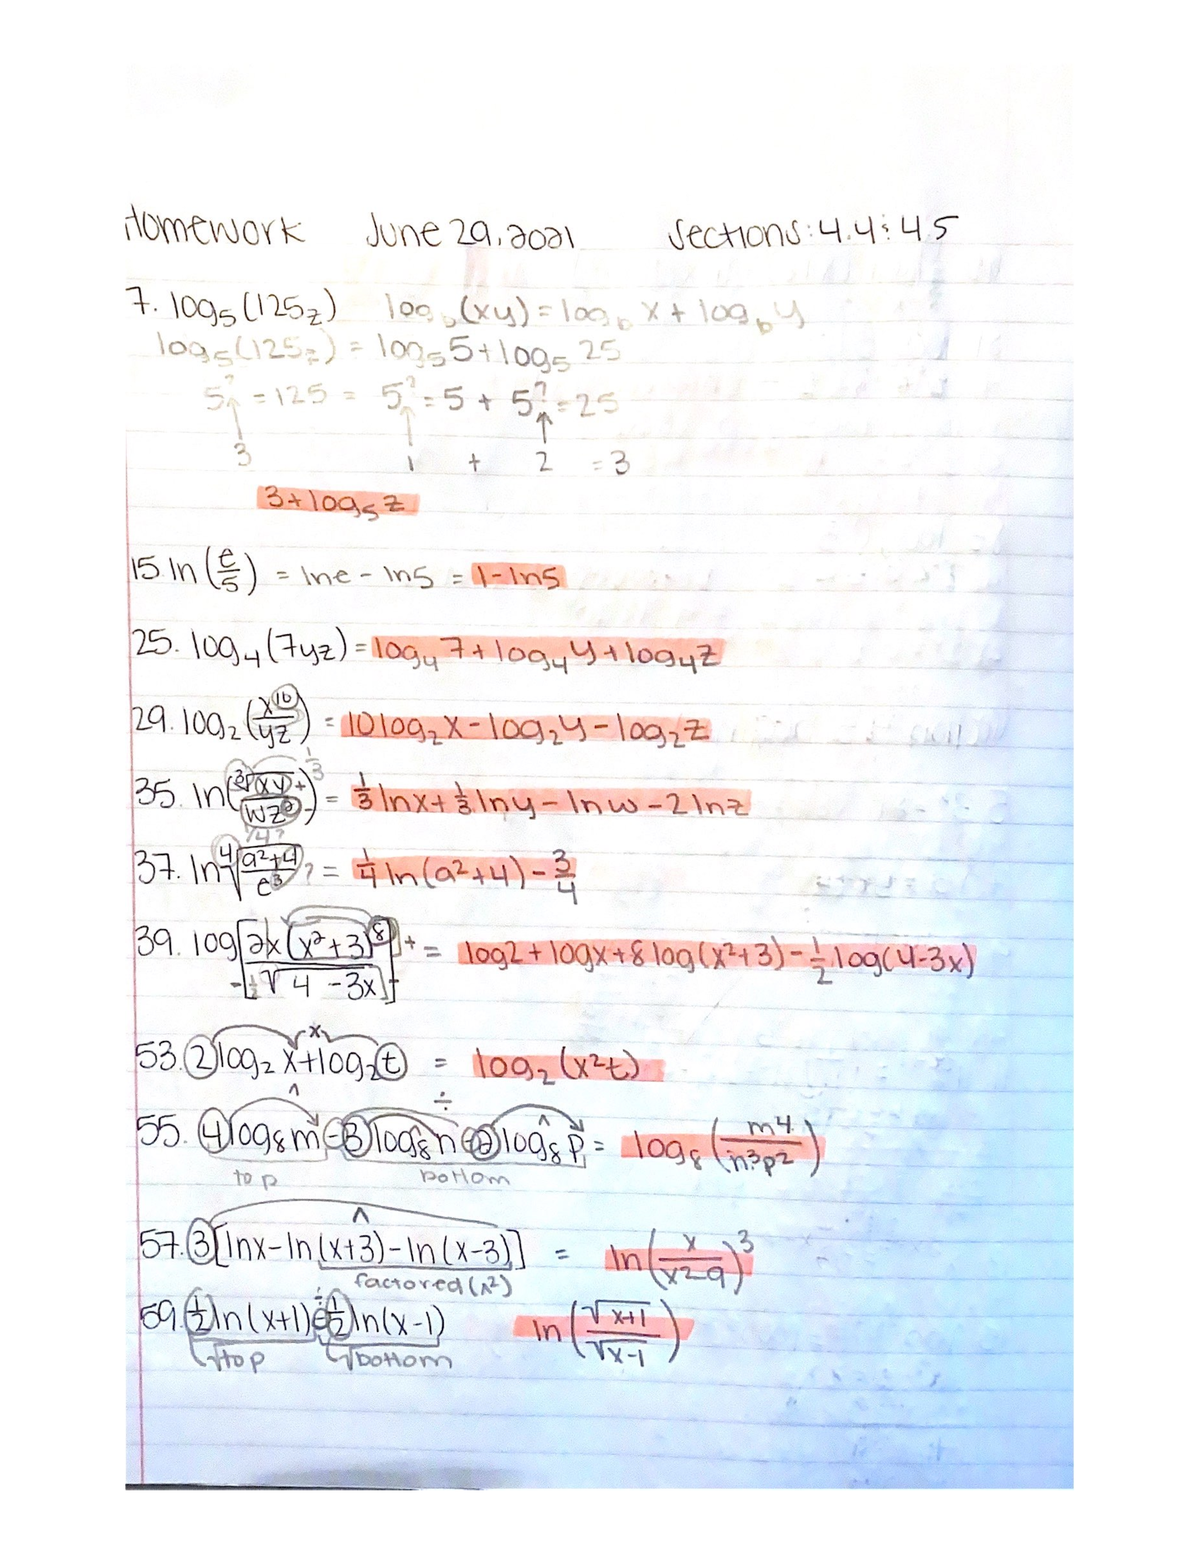 Homework June 29, 2021 Sections: 4.4 & 4.5
7. log₅(125z) log_b(xy) = log_b x + log_b y
log₅(125z) = log₅5 + log₅ 25
5^? = 125 = 5^? = 5 + 5^? = 25
3 1 + 2 = 3
3 + log₅ z
15. ln(e/5) = lne - ln5 = 1 - ln5
25. log₄(7yz) = log₄ 7 + log₄ y + log₄ z
29. log₂(x¹⁰/yz) = 10log₂x - log₂y - log₂z
1/3
35. ln(³√xy + / wz² -) = 1/3 lnx + 1/3 lny - lnw - 2lnz
1/4?
37. ln ⁴√(a²+4 / e³) ? = 1/4 ln(a²+4) - 3/4
39. log[2x(x²+3)⁸ / √4-3x] + = log2 + logx + 8log(x²+3) - 1/2 log(4-3x)
- 1/2 -
x
53. 2log₂ x + log₂ t = log₂ (x²t)
^ ÷ ^
55. 4log₈m - 3log₈n - 2log₈p = log₈(m⁴/n³p²)
top bottom
^
57. 3[lnx - ln(x+3) - ln(x-3)] = ln(x/x²-9)³
factored (x²)
÷
59. 1/2 ln(x+1) - 1/2 ln(x-1) ln(√x+1 / √x-1)
√top √bottom